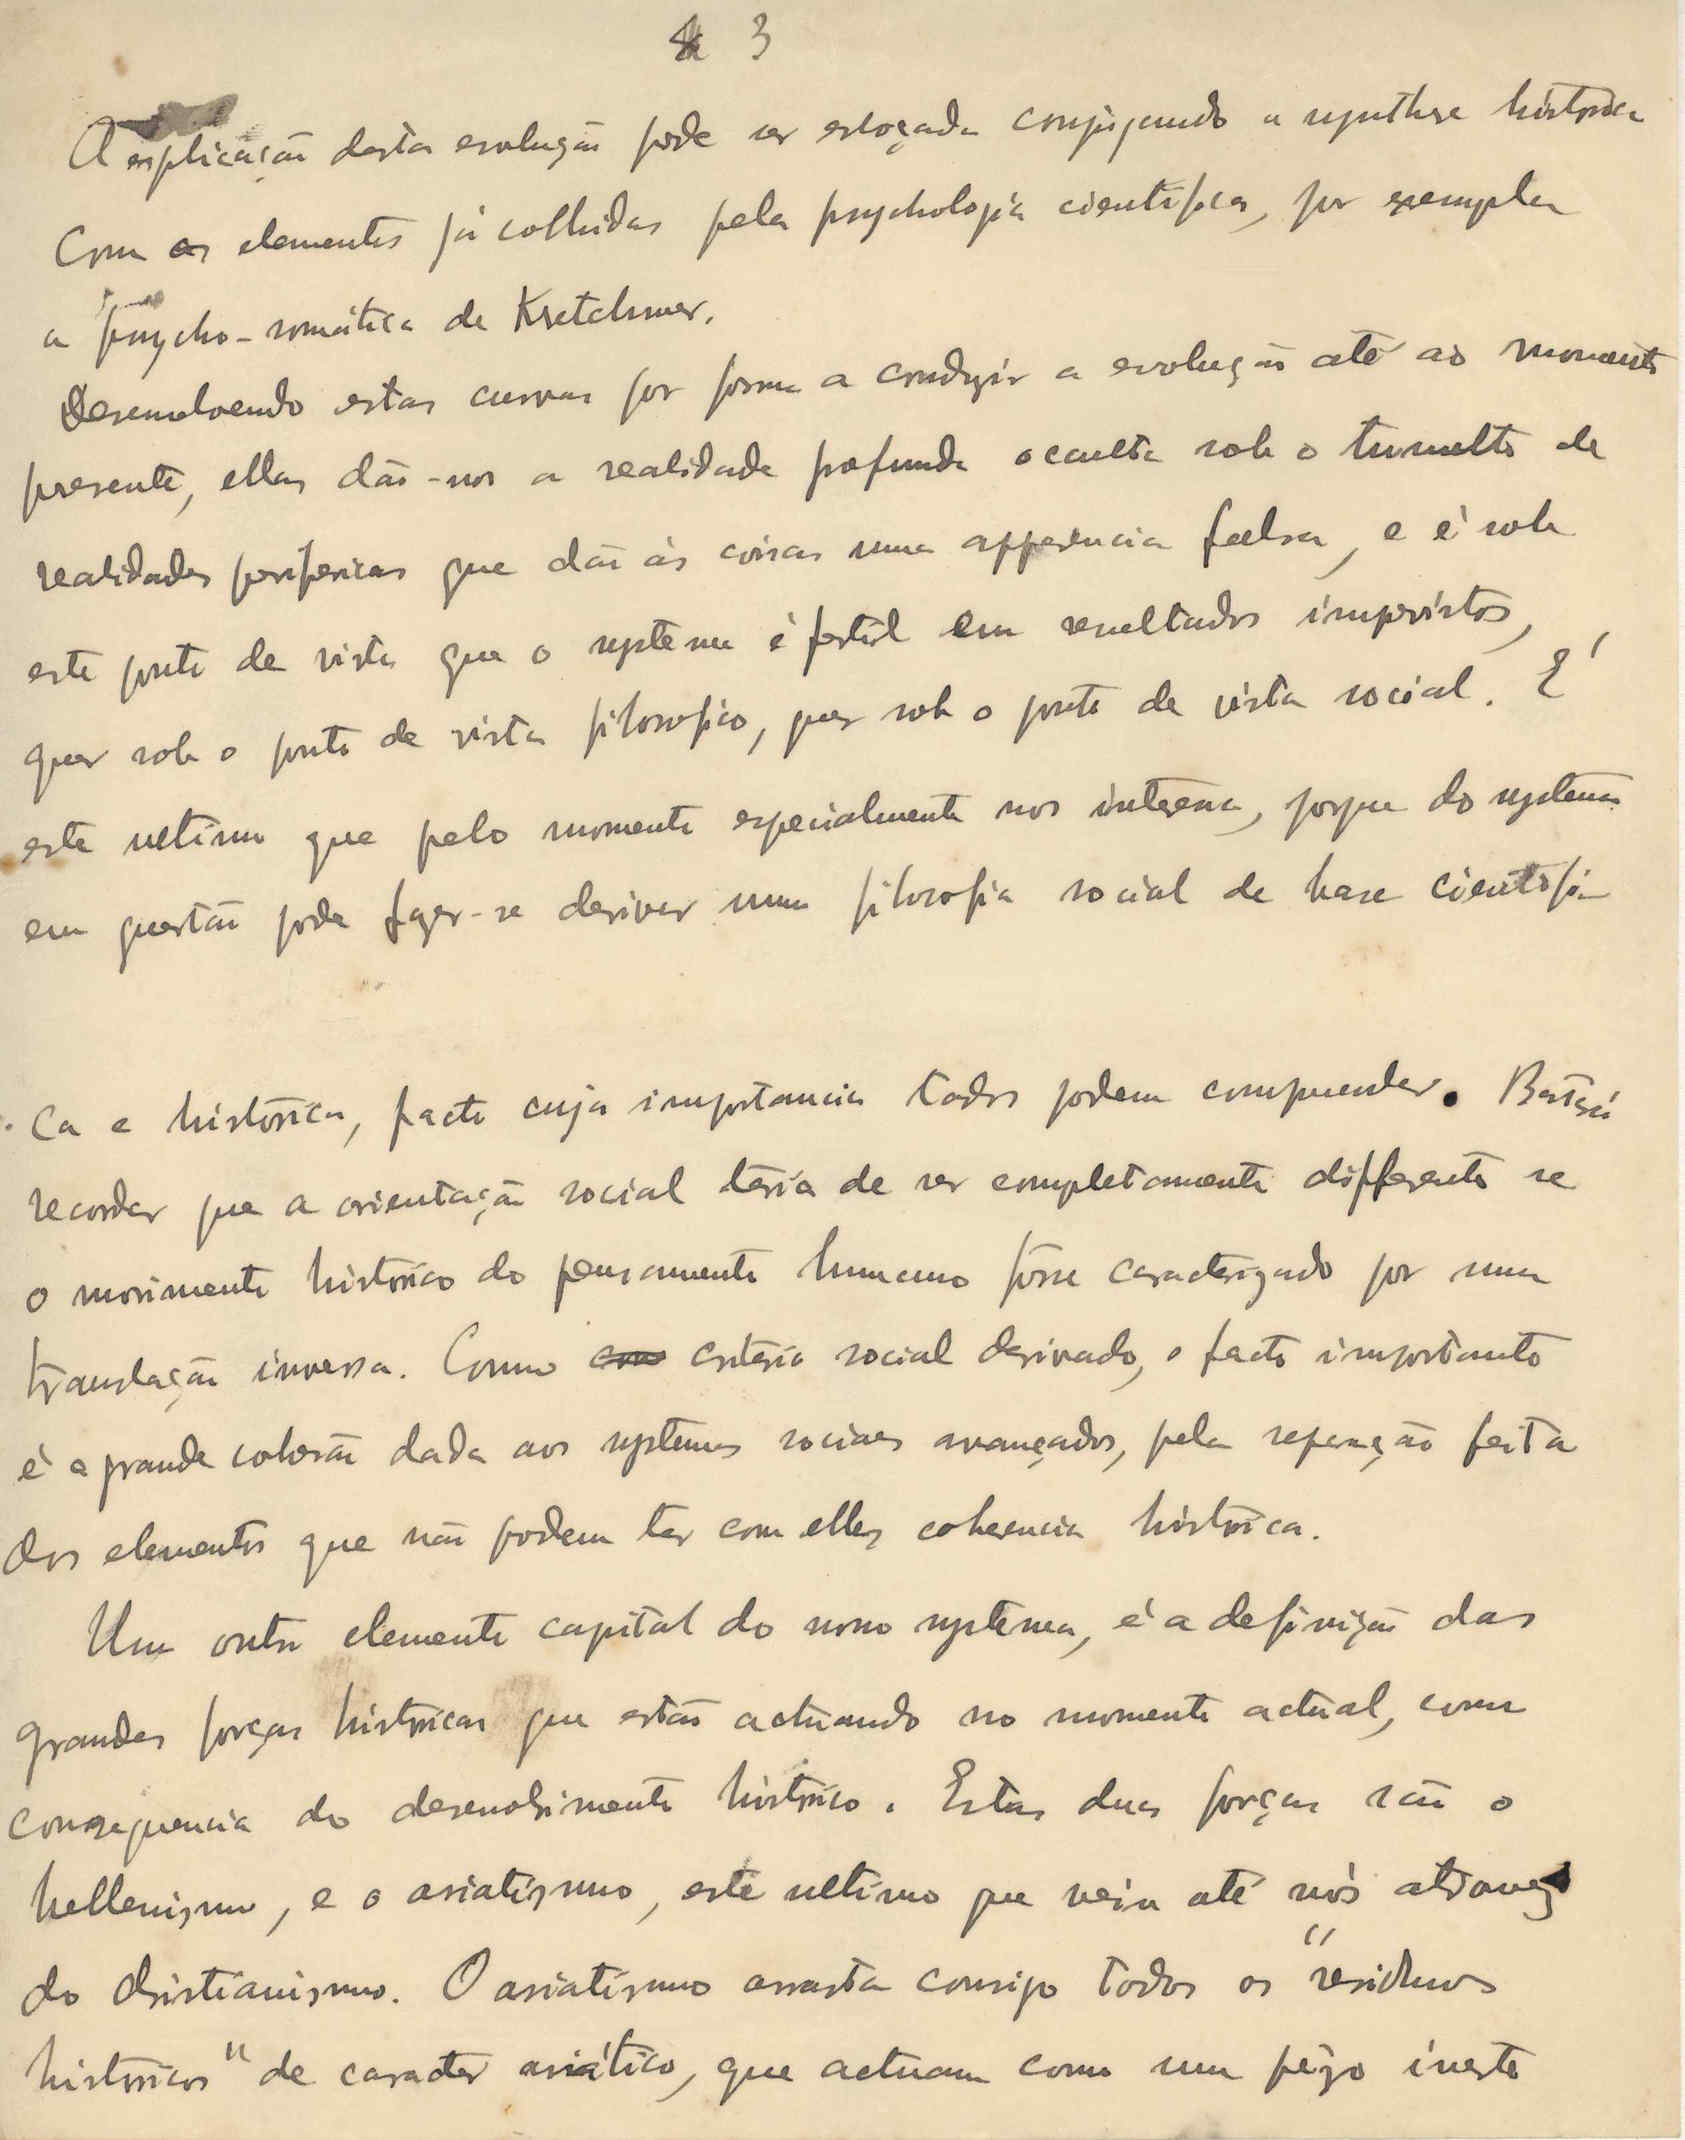 3
A explicação desta evolução pode ser esboçada conjugando a synthese histórica
com os elementos já colhidos pela psychologia cientifica, por exemplo
a psycho-somática de Kretchmer.
Desenvolvendo estas curvas por forma a conduzir a evolução até ao momento
presente, ellas dão-nos a realidade profunda occulta sob o tumulto de
realidades perifericas que dão ás coisas uma apparencia falsa, e é sob
este ponto de vista que o systema é fertil em resultados imprevistos,
quer sob o ponto de vista filosofico, quer sob o ponto de vista social. E'
este ultimo que pelo momento especialmente nos interessa, porque do systema
em questão pode fazer-se derivar uma filosofia social de base cientifi-
ca e histórica, facto cuja importancia todos podem comprender. Bastará
recordar que a orientação social teria de ser completamente differente se
o movimento histórico do pensamento humano fôsse caracterizado por uma
translação inversa. Como criterio social derivado, o facto importante
é a grande cohesão dada aos systemas sociaes avançados, pela separação feita
dos elementos que não podem ter com elles coherencia histórica.
Um outro elemento capital do novo systema, é a definição das
grandes forças históricas que estão actuando no momento actual, como
consequencia do desenvolvimento histórico. Estas duas forças são o
hellenismo, e o asiatismo, este ultimo que veiu até nós atravez
do christianismo. O asiatismo arrasta consigo todos os "residuos
históricos" de caracter asiático, que actuam como um pêzo inerte